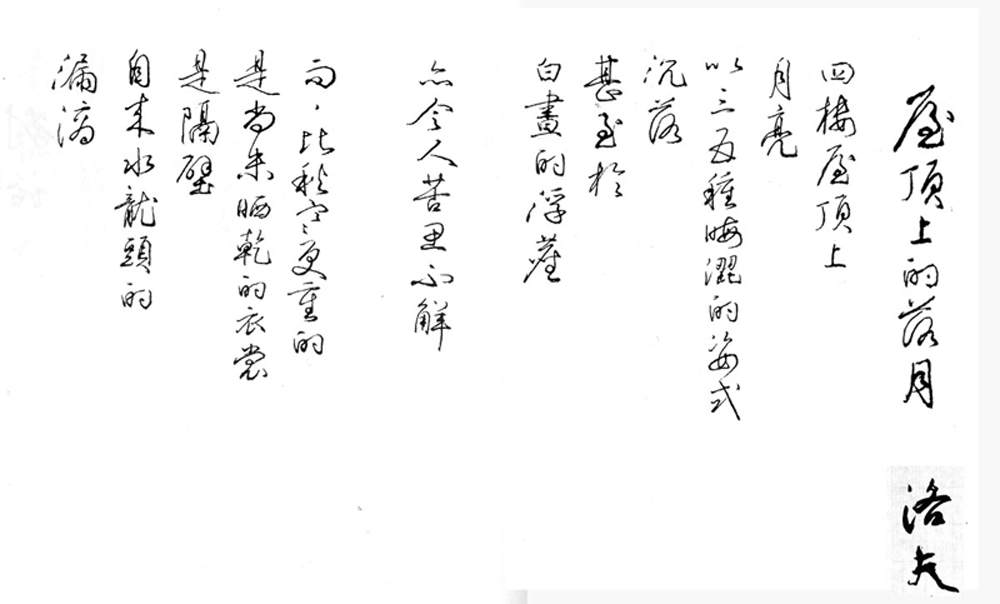 屋頂上的落月
洛夫
四樓屋頂上
月亮
以三五種晦澀的姿式
沉落
甚至於
白晝的浮
亦令人苦思不解
而，比秋空更重的
是尚未晒乾的衣裳
是隔壁
自來水龍頭的
漏滴